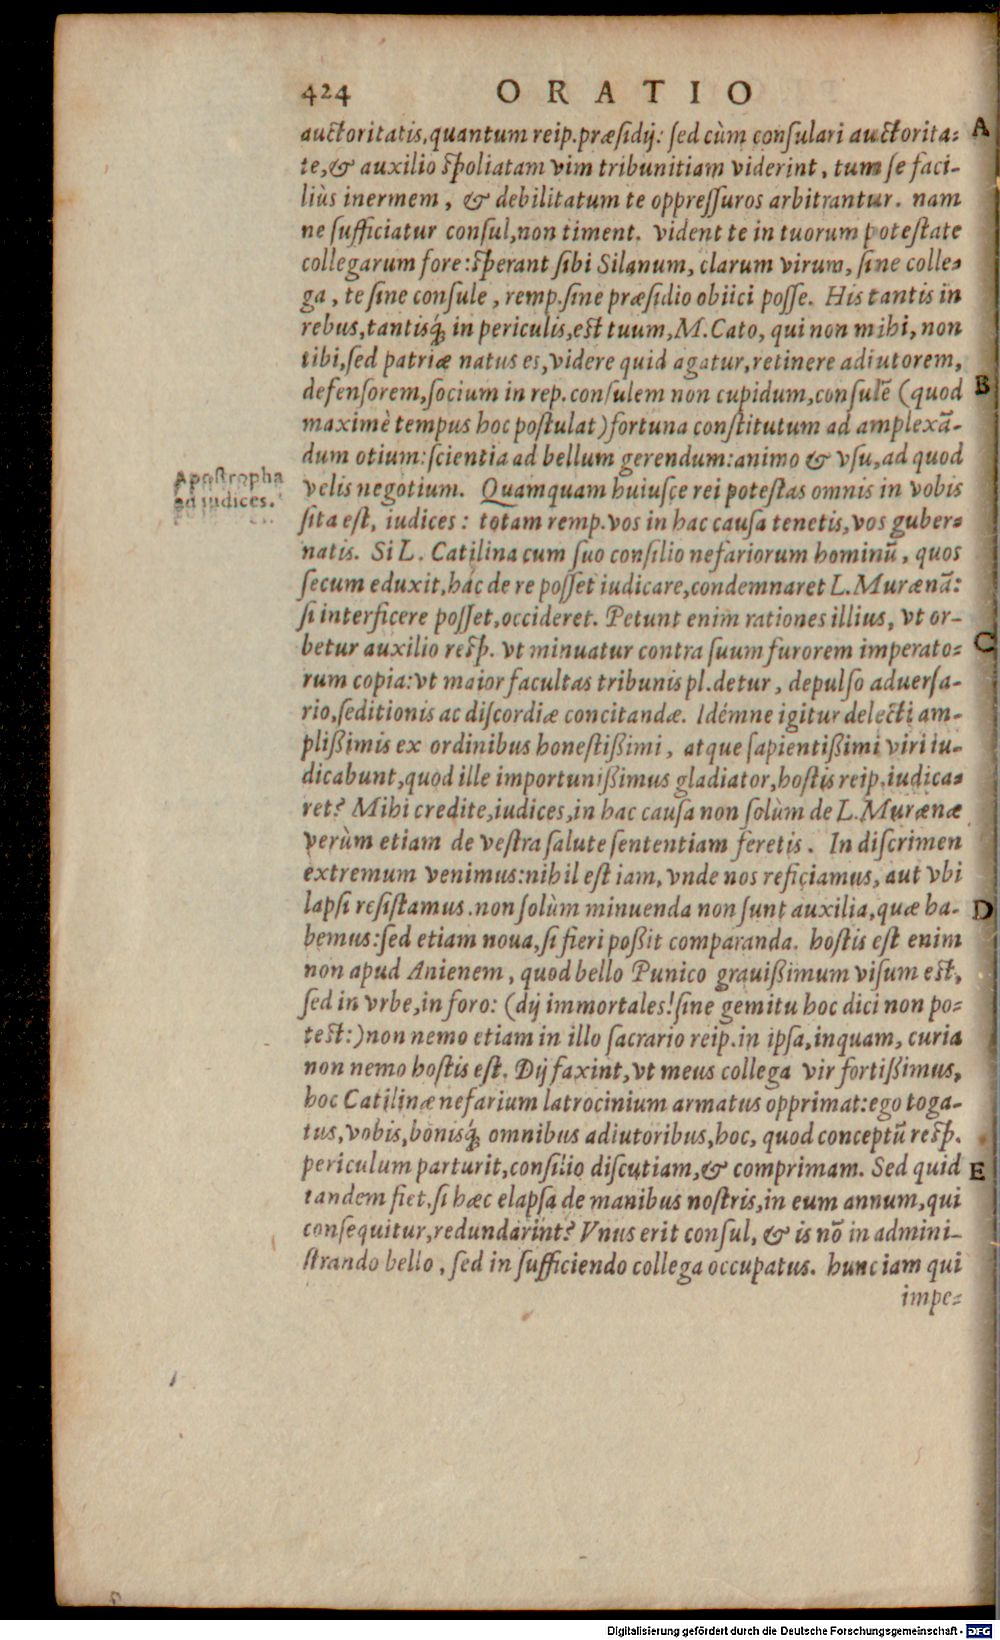 424 ORATIO
auctoritatis, quantum reip. præsidij: sed cùm consulari auctorita= A
te, & auxilio spoliatam vim tribunitiam viderint, tum se faci-
liùs inermem, & debilitatum te oppressuros arbitrantur. nam
ne sufficiatur consul, non timent. vident te in tuorum potestate
collegarum fore: sperant sibi Silanum, clarum virum, sine colle=
ga, te sine consule, remp. sine præsidio obiici posse. His tantis in
rebus, tantisq́; in periculis, est tuum, M. Cato, qui non mihi, non
tibi, sed patriæ natus es, videre quid agatur, retinere adiutorem,
defensorem, socium in rep. consulem non cupidum, consulẽ (quod B
maximè tempus hoc postulat) fortuna constitutum ad amplexã-
dum otium: scientia ad bellum gerendum: animo & vsu, ad quod
Apostropha
ad iudices.
velis negotium. Quamquam huiusce rei potestas omnis in vobis
sita est, iudices: totam remp. vos in hac causa tenetis, vos guber=
natis. Si L. Catilina cum suo consilio nefariorum hominũ, quos
secum eduxit, hac de re posset iudicare, condemnaret L. Murænã:
si interficere posset, occideret. Petunt enim rationes illius, vt or-
betur auxilio resp. vt minuatur contra suum furorem imperato= C
rum copia: vt maior facultas tribunis pl. detur, depulso aduersa-
rio, seditionis ac discordiæ concitandæ. Idémne igitur delecti am-
plißimis ex ordinibus honestißimi, atque sapientißimi viri iu-
dicabunt, quod ille importunißimus gladiator, hostis reip. iudica=
ret? Mihi credite, iudices, in hac causa non solùm de L. Murænæ
verùm etiam de vestra salute sententiam feretis. In discrimen
extremum venimus: nihil est iam, vnde nos reficiamus, aut vbi
lapsi resistamus. non solùm minuenda non sunt auxilia, quæ ha- D
bemus: sed etiam noua, si fieri poßit comparanda. hostis est enim
non apud Anienem, quod bello Punico grauißimum visum est,
sed in vrbe, in foro: (dij immortales! sine gemitu hoc dici non po=
test:) non nemo etiam in illo sacrario reip. in ipsa, inquam, curia
non nemo hostis est. Dij faxint, vt meus collega vir fortißimus,
hoc Catilinæ nefarium latrocinium armatus opprimat: ego toga-
tus, vobis, bonisq́; omnibus adiutoribus, hoc, quod conceptũ resp.
periculum parturit, consilio discutiam, & comprimam. Sed quid E
tandem fiet, si hæc elapsa de manibus nostris, in eum annum, qui
consequitur, redundarint? Vnus erit consul, & is nõ in admini-
strando bello, sed in sufficiendo collega occupatus. hunc iam qui
impe=
Digitalisierung gefördert durch die Deutsche Forschungsgemeinschaft - DFG